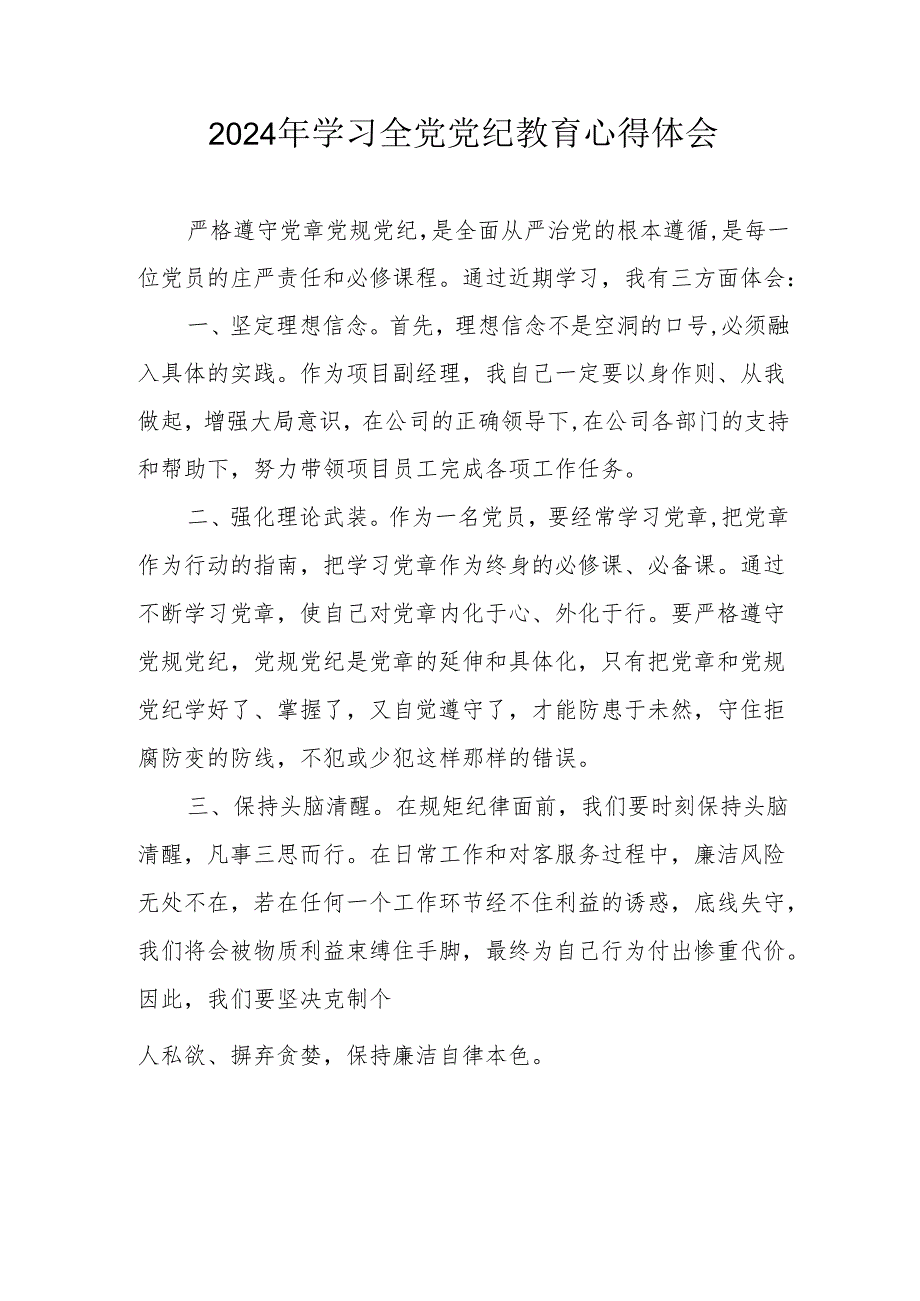 2024年学习全党党纪教育心得体会
严格遵守党章党规党纪,是全面从严治党的根本遵循,是每一
位党员的庄严责任和必修课程。通过近期学习，我有三方面体会：
一、坚定理想信念。首先，理想信念不是空洞的口号,必须融
入具体的实践。作为项目副经理，我自己一定要以身作则、从我
做起，增强大局意识，在公司的正确领导下,在公司各部门的支持
和帮助下，努力带领项目员工完成各项工作任务。
二、强化理论武装。作为一名党员，要经常学习党章,把党章
作为行动的指南，把学习党章作为终身的必修课、必备课。通过
不断学习党章，使自己对党章内化于心、外化于行。要严格遵守
党规党纪，党规党纪是党章的延伸和具体化，只有把党章和党规
党纪学好了、掌握了，又自觉遵守了，才能防患于未然，守住拒
腐防变的防线，不犯或少犯这样那样的错误。
三、保持头脑清醒。在规矩纪律面前，我们要时刻保持头脑
清醒，凡事三思而行。在日常工作和对客服务过程中，廉洁风险
无处不在，若在任何一个工作环节经不住利益的诱惑，底线失守，
我们将会被物质利益束缚住手脚，最终为自己行为付出惨重代价。
因此，我们要坚决克制个
人私欲、摒弃贪婪，保持廉洁自律本色。